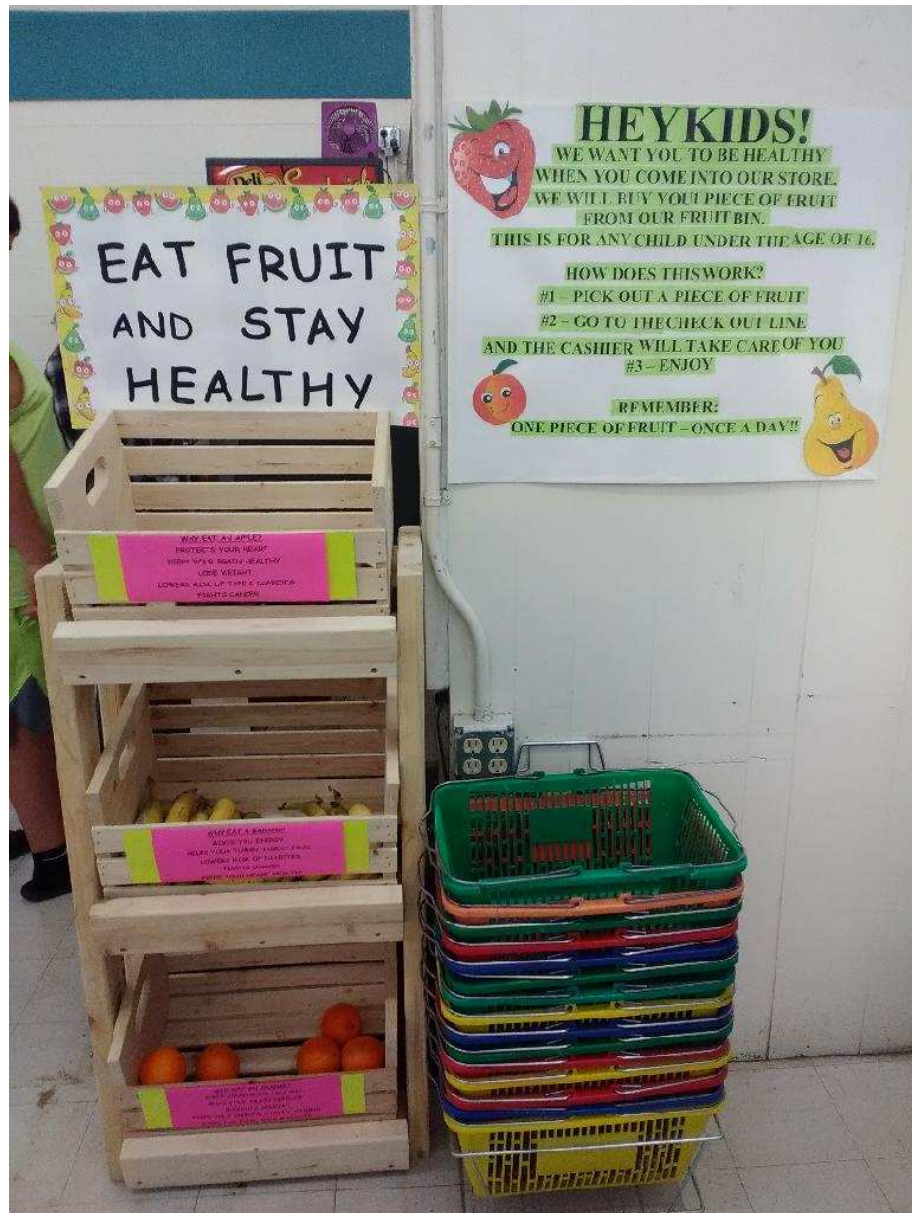 Deli
EAT FRUIT
AND STAY
HEALTHY
HEYKIDS!
WE WANT YOU TO BE HEALTHY
WHEN YOU COME INTO OUR STORE.
WE WILL BUY YOU 1 PIECE OF FRUIT
FROM OUR FRUIT BIN.
THIS IS FOR ANY CHILD UNDER THE AGE OF 16.
HOW DOES THIS WORK?
#1 – PICK OUT A PIECE OF FRUIT
#2 – GO TO THE CHECK OUT LINE
AND THE CASHIER WILL TAKE CARE OF YOU
#3 – ENJOY
REMEMBER:
ONE PIECE OF FRUIT – ONCE A DAY!!
WHY EAT AN APPLE?
PROTECTS YOUR HEART
KEEPS YOUR BRAIN HEALTHY
LOSE WEIGHT
LOWERS RISK OF TYPE 2 DIABETES
FIGHTS CANCER
WHY EAT A BANANA?
GIVES YOU ENERGY
LOWERS RISK OF DIABETES
KEEPS YOUR HEART HEALTHY
WHY EAT AN ORANGE?